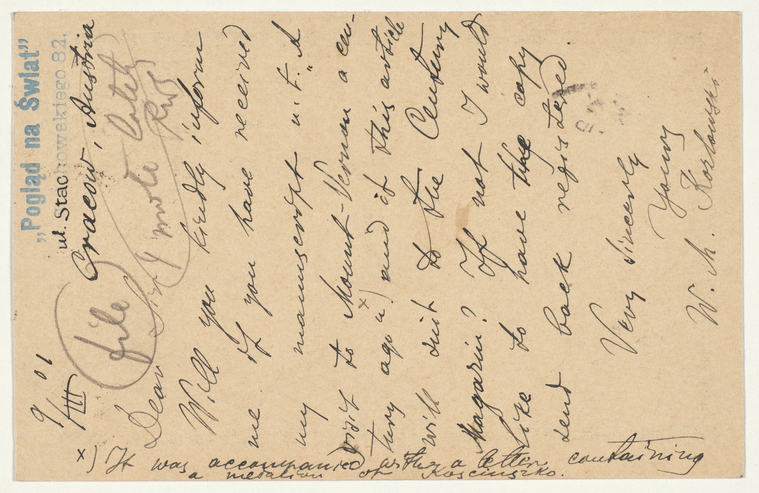 „Pogląd na Świat"
ul. Stachowskiego 82.
Cracow, Austria
9/III 01
file
I wrote
Dear Sir
Will you kindly inform
me if you have received
my manuscript u. t. „A
visit to Mount-Vernon a cen-
tury ago" x) and if this article
will suit to the Century
Magazin? If not I would
like to have the copy
send back registered.
Very sincerely
Yours
W. M. Kozlowski
x) It was accompanied with a letter containing
a medalion of Kosciuszko.